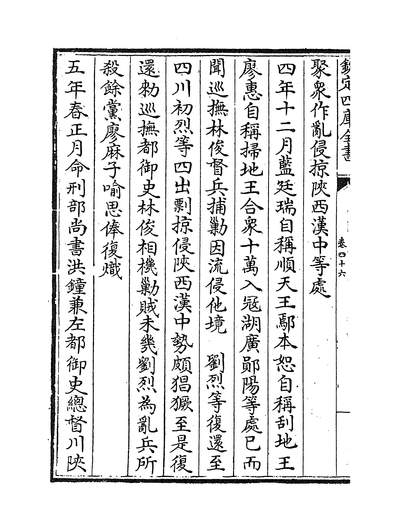 欽定四庫全書
卷四十六
聚衆作亂侵掠陝西漢中等處
四年十二月藍廷瑞自稱順天王鄢本恕自稱刮地王
廖惠自稱掃地王合衆十萬入寇湖廣鄖陽等處已而
聞巡撫林俊督兵捕勦因流侵他境　劉烈等復還至
四川初烈等四出剽掠侵陝西漢中勢頗猖獗至是復
還勑巡撫都御史林俊相機勦賊未幾劉烈為亂兵所
殺餘黨廖麻子喻思俸復熾
五年春正月命刑部尚書洪鐘兼左都御史總督川陝